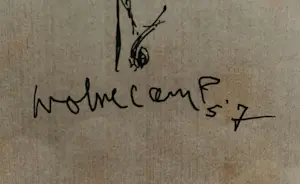 Wolvecamp 57